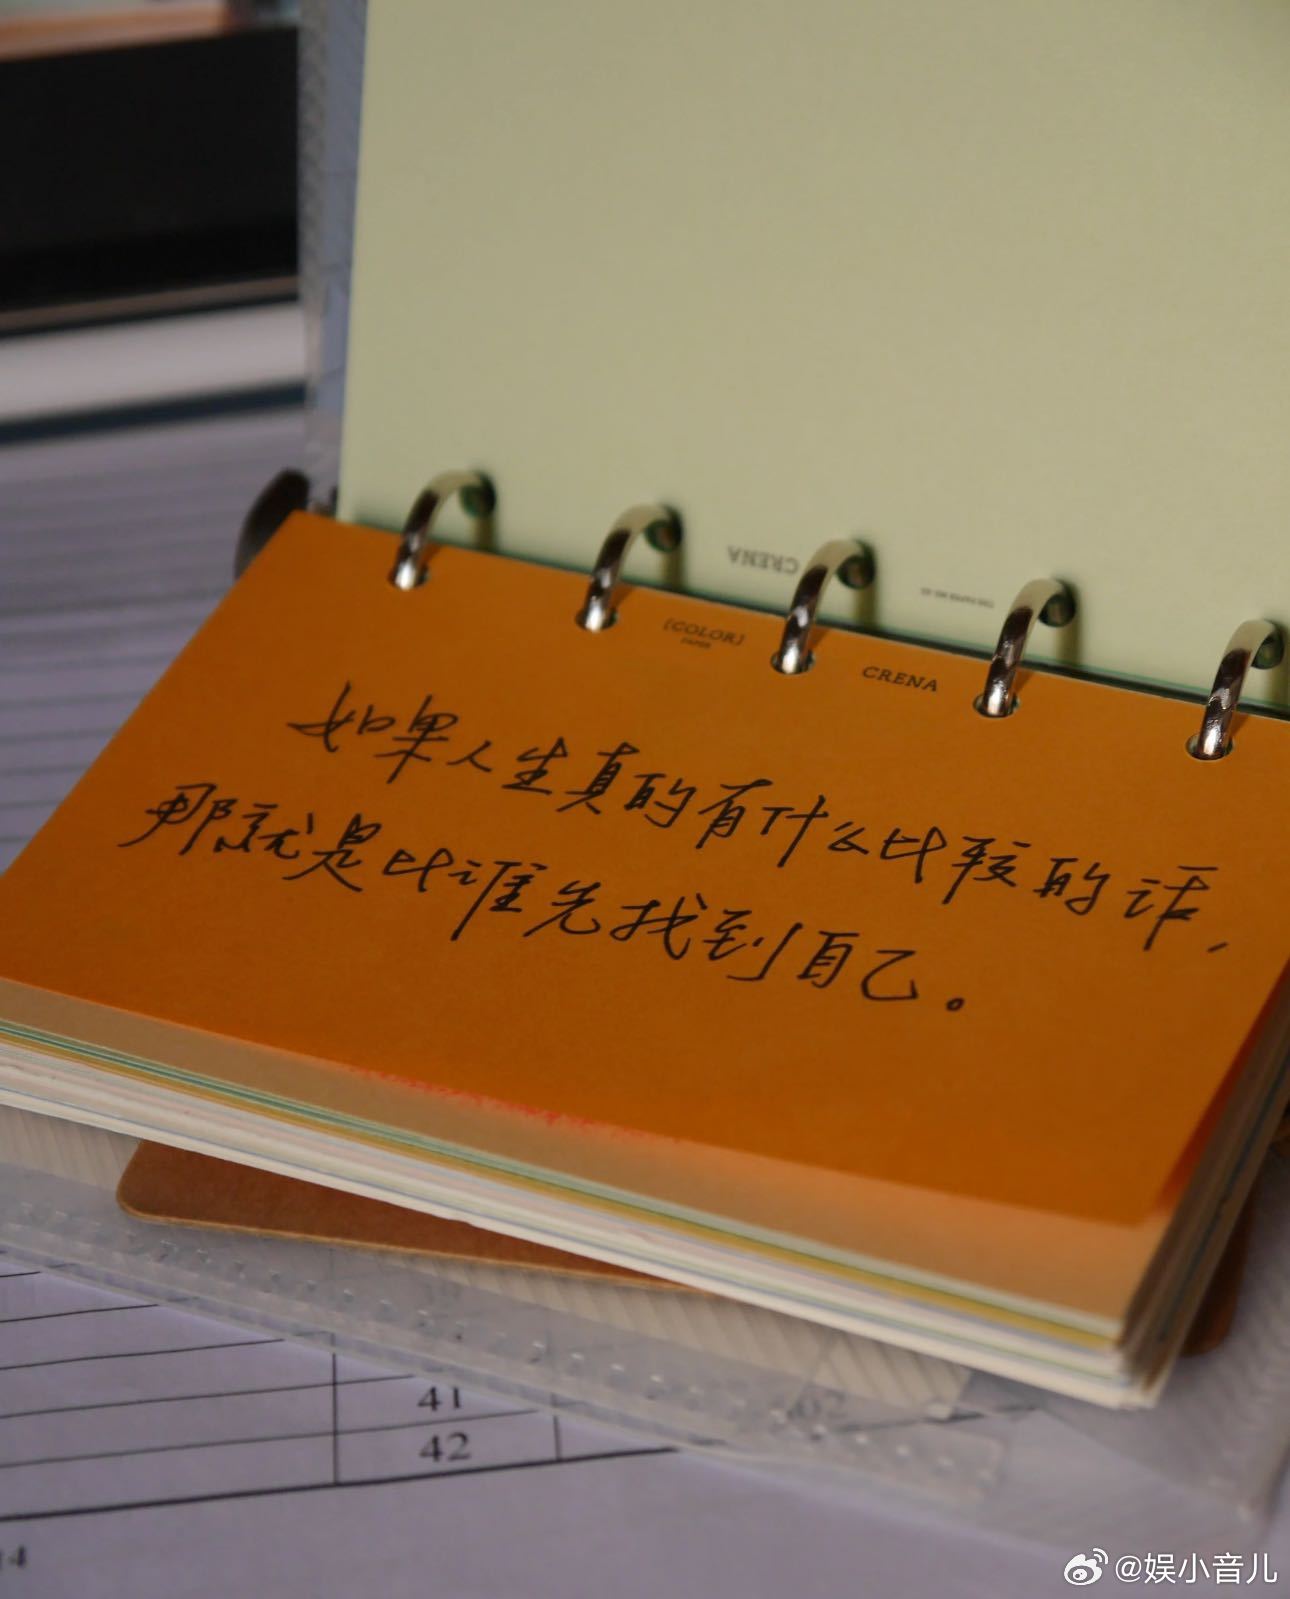 CRENA
{COLOR}
PAPER
CRENA
如果人生真的有什么比较的话,
那就是比谁先找到自己。
41
42
02
14
@娱小音儿